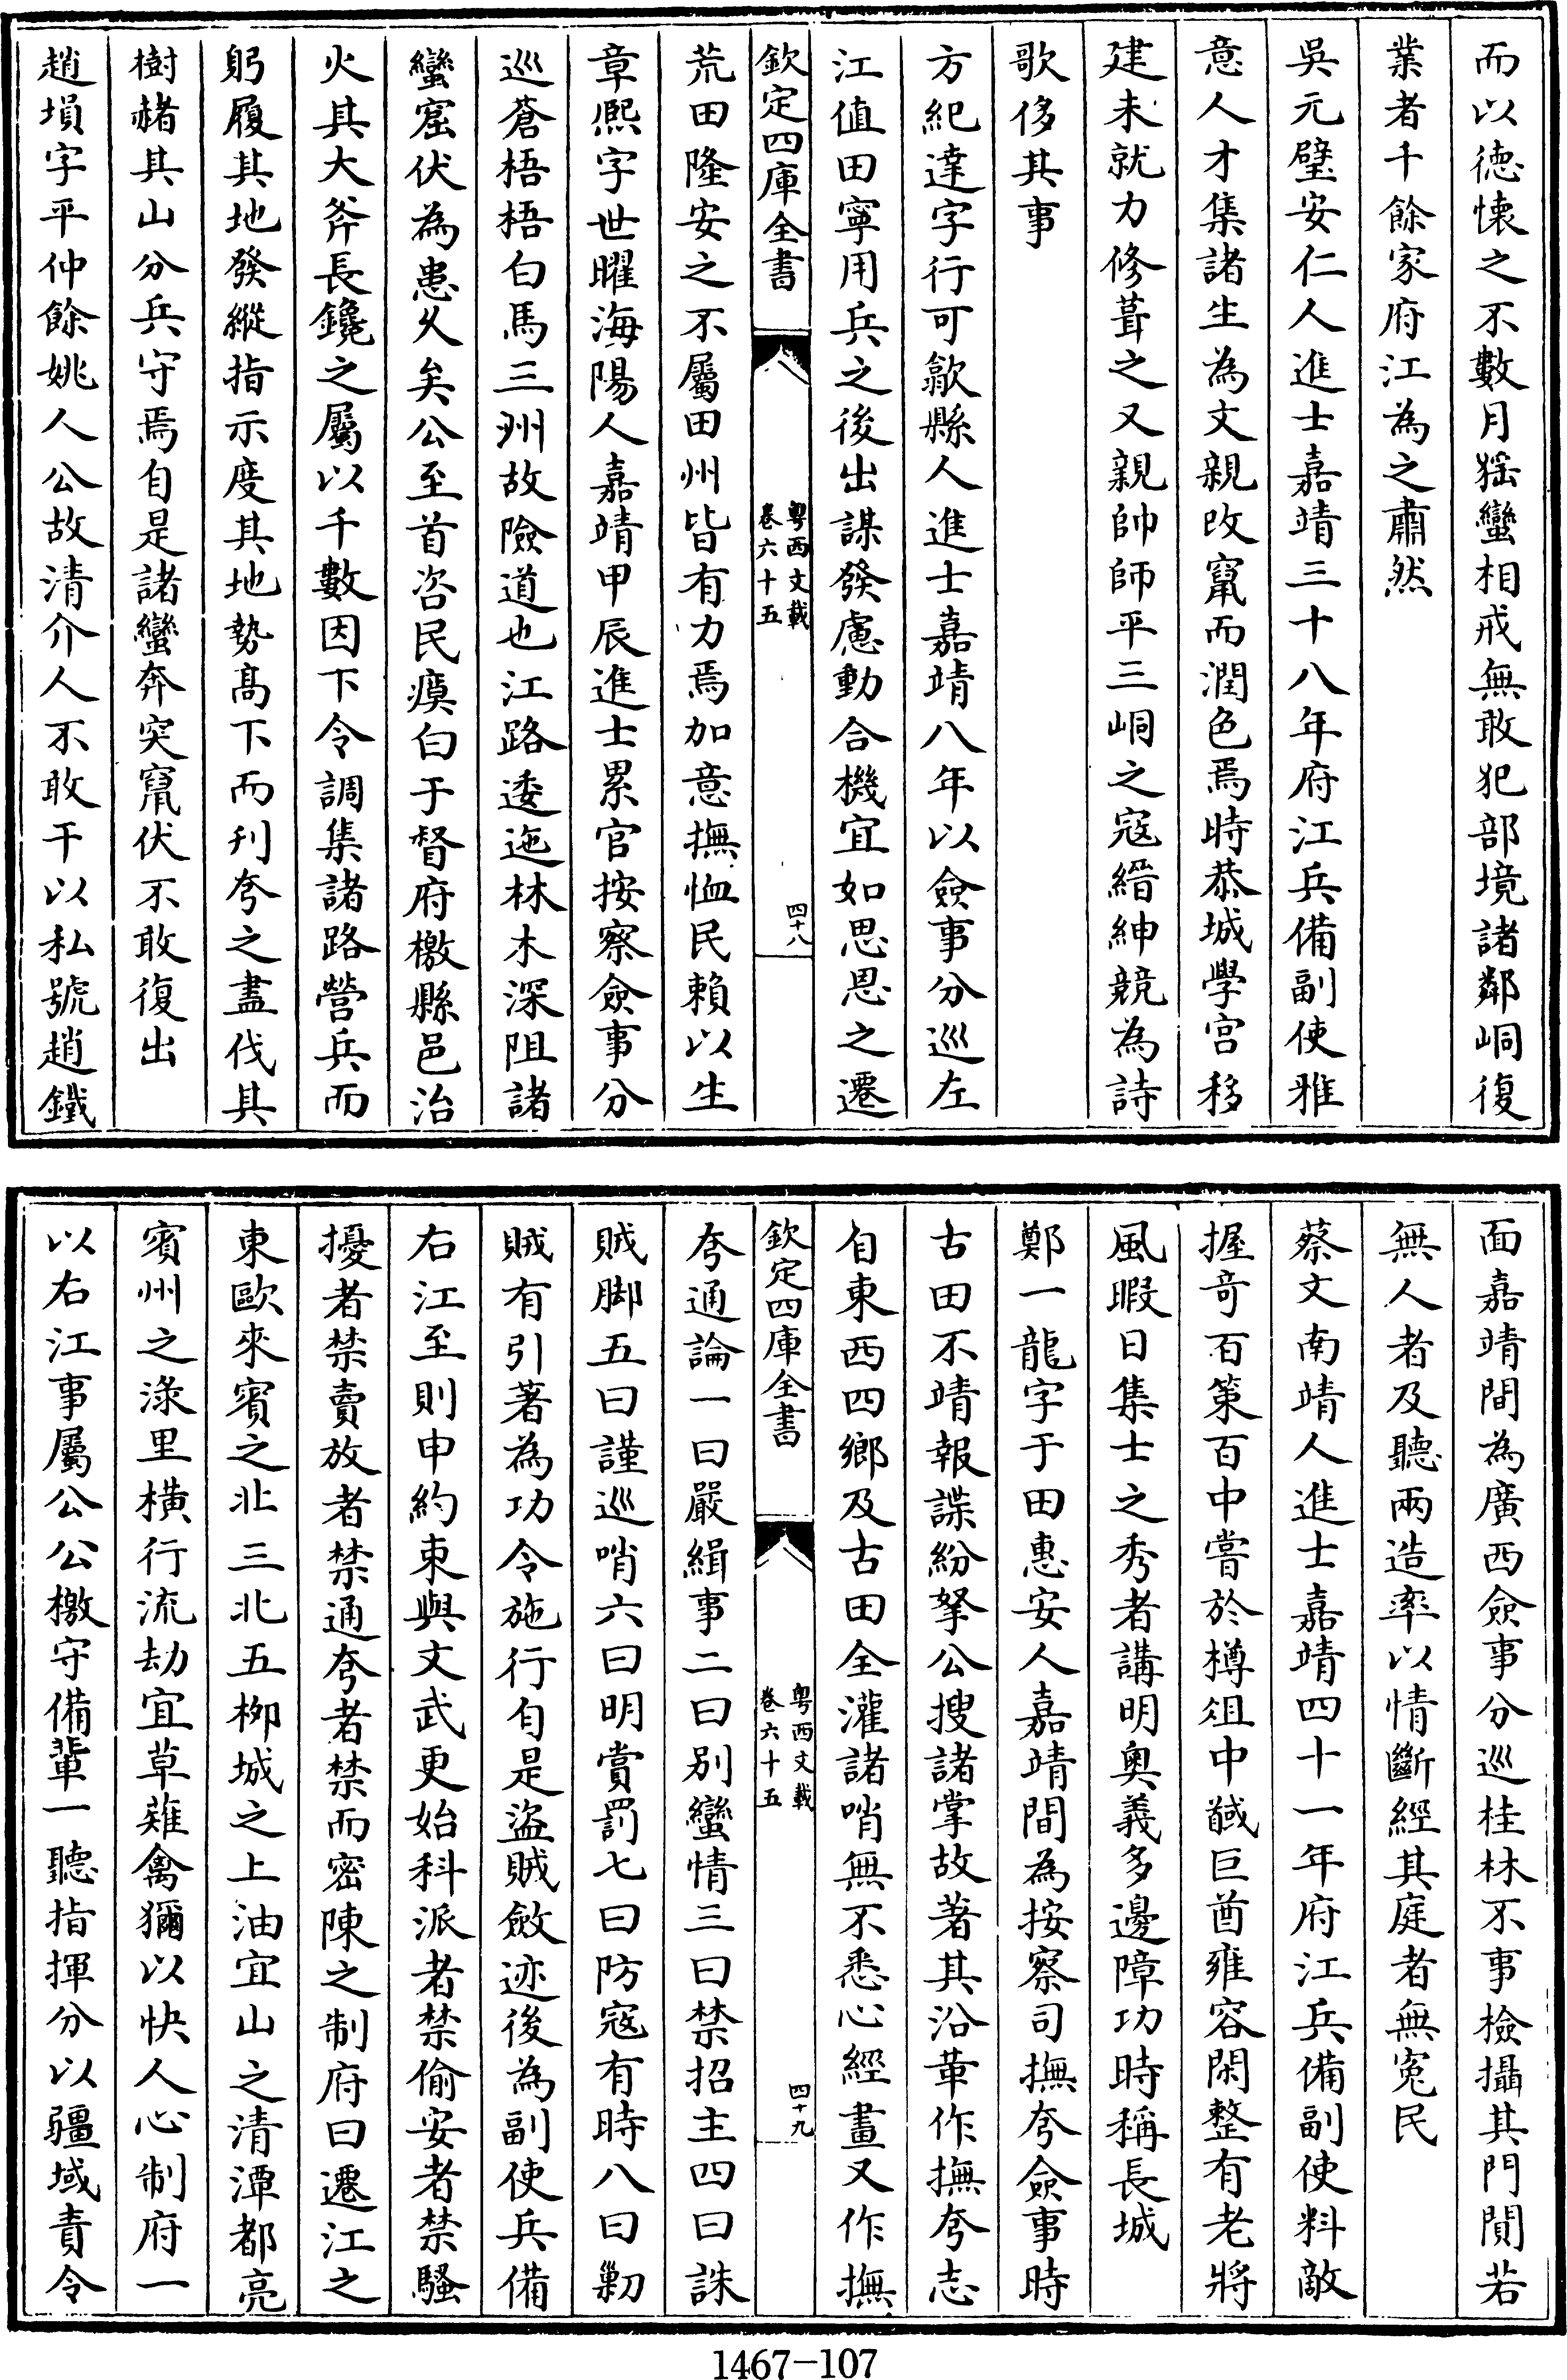 而以徳懐之不數月猺蠻相戒無敢犯部境諸鄰峒復
業者千餘家府江為之肅然
吳元璧安仁人進士嘉靖三十八年府江兵備副使雅
意人才集諸生為文親改竄而潤色焉時恭城學宫移
建未就力修葺之又親帥師平三峒之寇縉紳競為詩
歌侈其事
方紀達字行可歙縣人進士嘉靖八年以僉事分巡左
江值田寧用兵之後出謀發慮動合機宜如思恩之遷
欽定四庫全書
粤西文載
卷六十五
四十八
荒田隆安之不屬田州皆有力焉加意撫恤民賴以生
章熙字世曜海陽人嘉靖甲辰進士累官按察僉事分
巡蒼梧梧白馬三州故險道也江路逶迤林木深阻諸
蠻窟伏為患乆矣公至首咨民瘼白于督府檄縣邑治
火其大斧長鑱之屬以千數因下令調集諸路營兵而
躬履其地發縱指示度其地勢髙下而刋夸之盡伐其
樹赭其山分兵守焉自是諸蠻奔突竄伏不敢復出
趙塤字平仲餘姚人公故清介人不敢干以私號趙鐵
面嘉靖間為廣西僉事分巡桂林不事檢攝其門閴若
無人者及聽兩造率以情斷經其庭者無寃民
蔡文南靖人進士嘉靖四十一年府江兵備副使料敵
握竒百策百中嘗於樽俎中馘巨酋雍容閑整有老將
風暇日集士之秀者講明奥義多邊障功時稱長城
鄭一龍字于田惠安人嘉靖間為按察司撫夸僉事時
古田不靖報諜紛拏公搜諸掌故著其沿革作撫夸志
自東西四鄉及古田全灌諸哨無不悉心經畫又作撫
欽定四庫全書
粤西文載
卷六十五
四十九
夸通論一曰嚴緝事二曰别蠻情三曰禁招主四曰誅
賊脚五曰謹巡哨六曰明賞罰七曰防寇有時八曰剿
賊有引著為功令施行自是盜賊斂迹後為副使兵備
右江至則申約束與文武更始科派者禁偷安者禁騷
擾者禁賣放者禁通夸者禁而密陳之制府曰遷江之
東歐來賓之北三北五栁城之上油宜山之清潭都亮
賓州之淥里横行流劫宜草薙禽獮以快人心制府一
以右江事屬公公檄守備軰一聽指揮分以疆域責令
1467-107